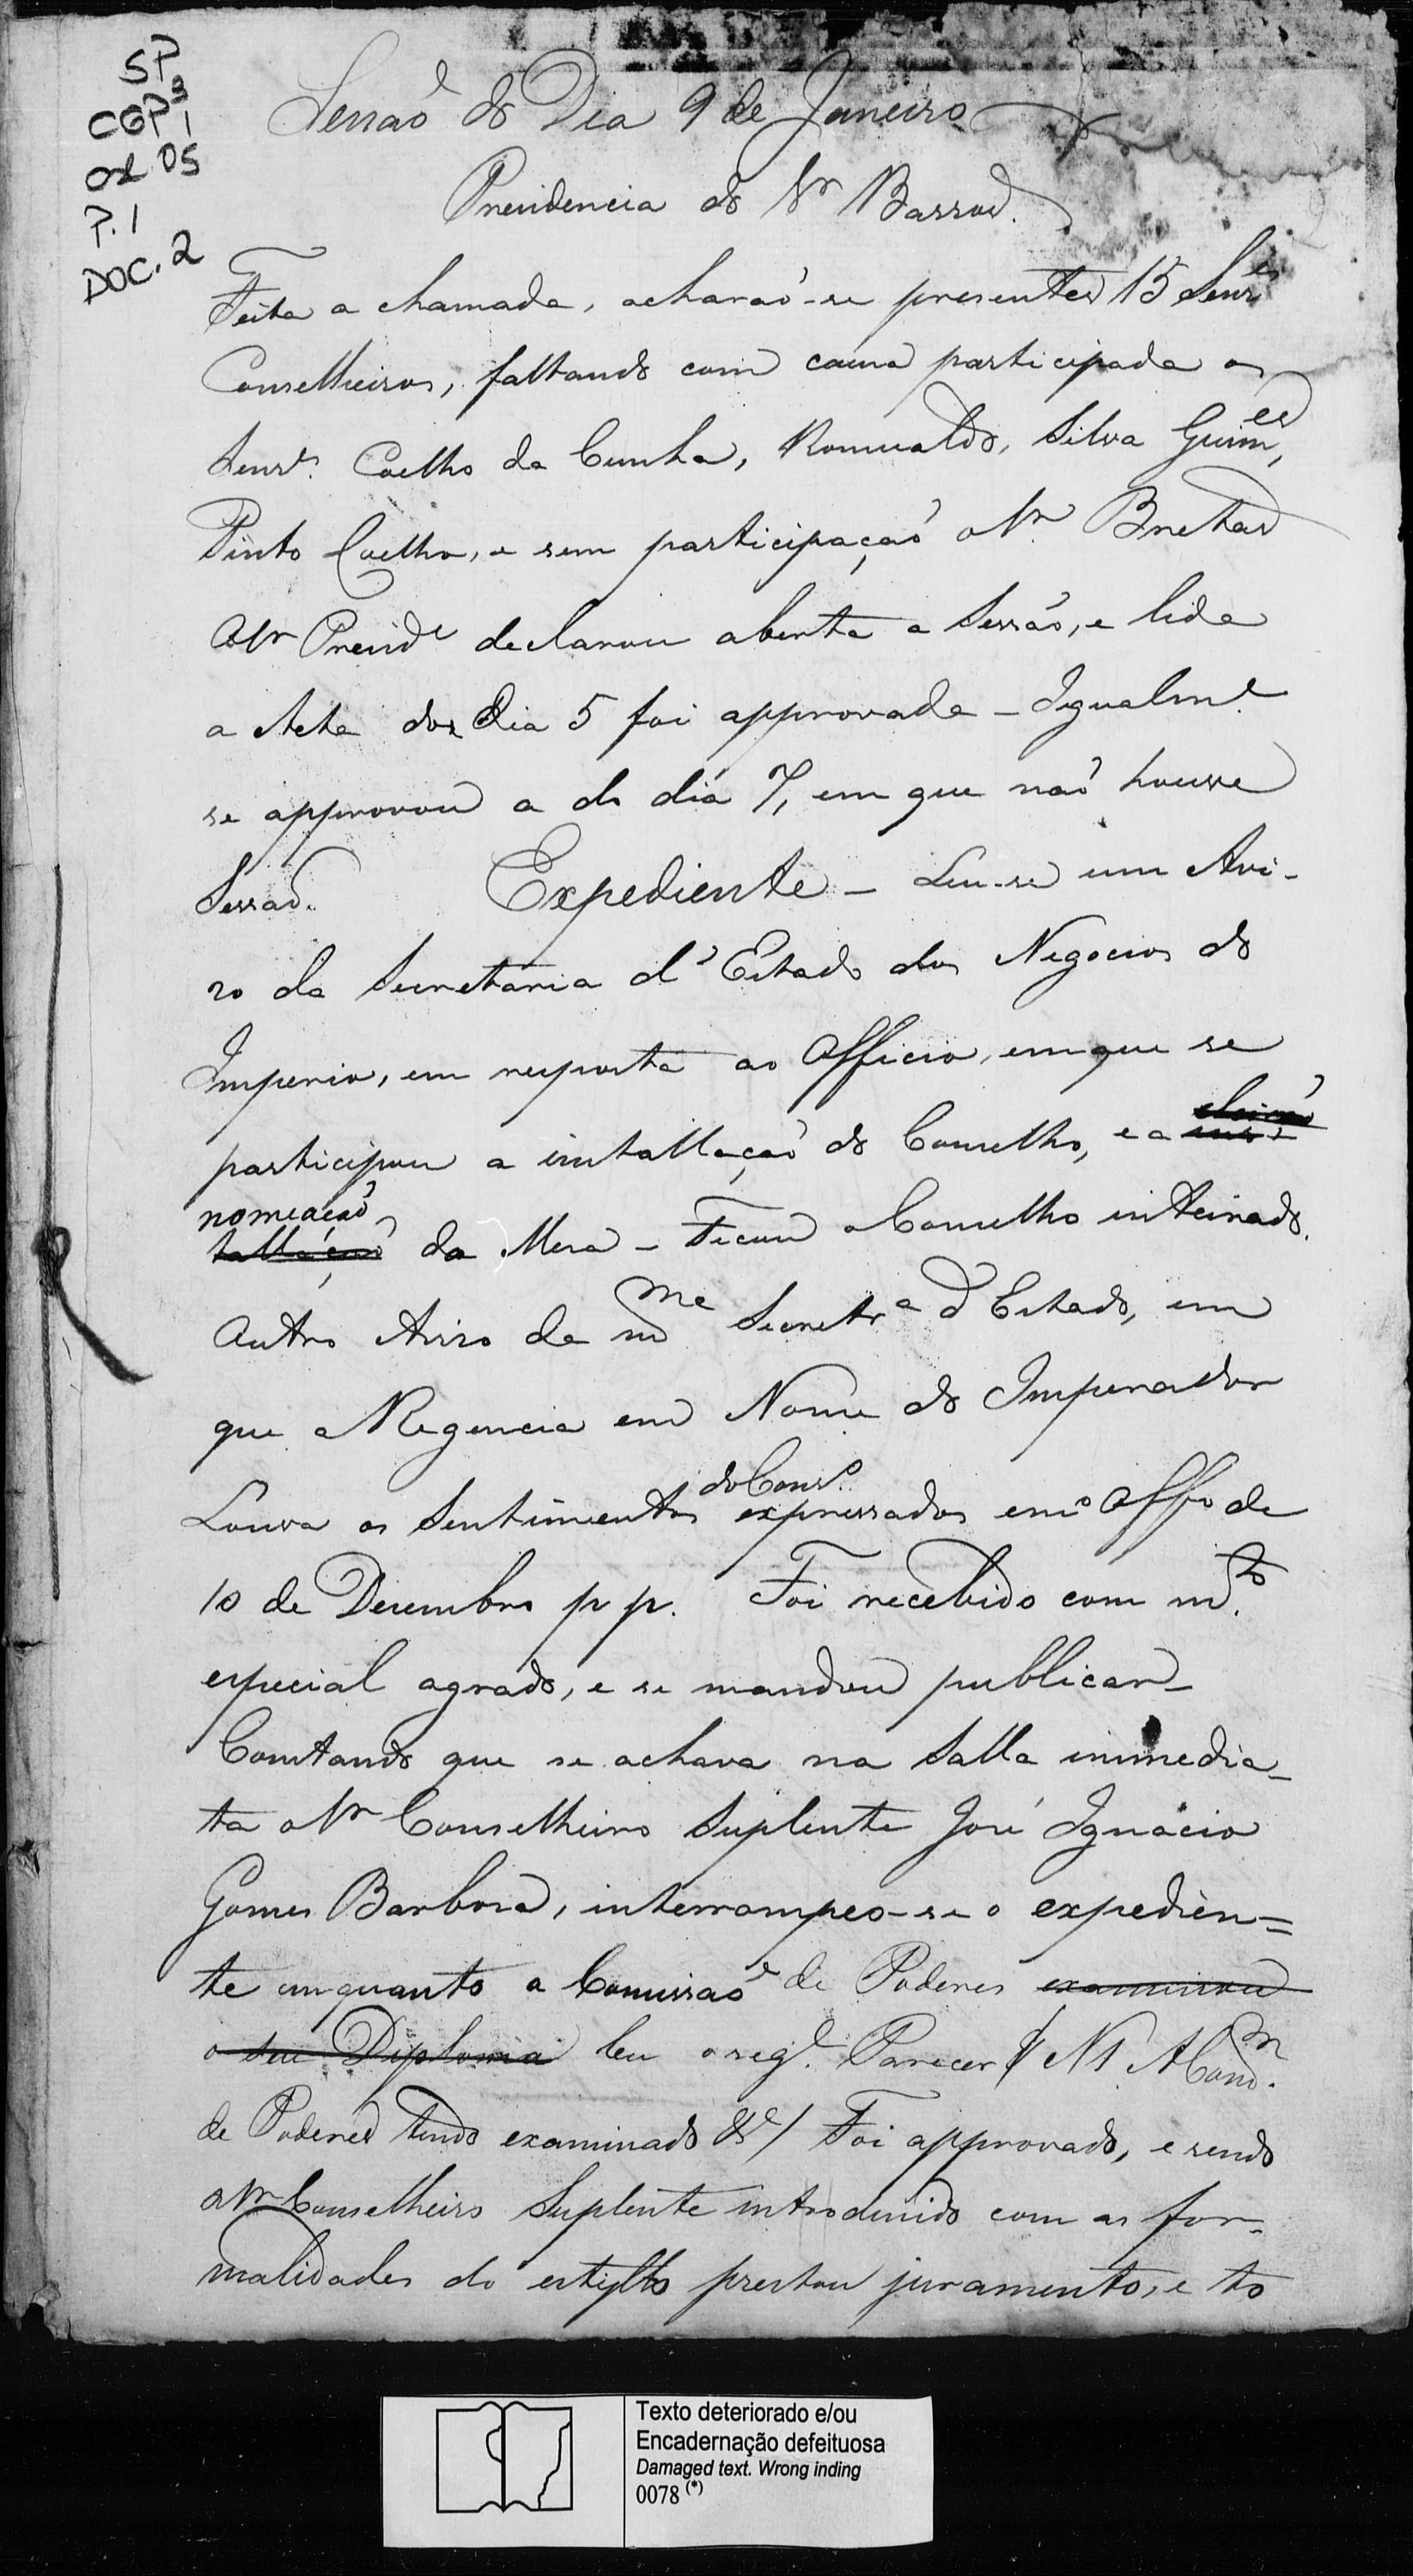 SP
CGP³ 1
cx 05
P. 1
DOC. 2
Sessaõ do Dia 9 de Janeiro
Presidencia do Sr Barros.
Feita a chamada, acharaõ-se presentes 15 Senrs
Conselheiros, faltando com causa participada os
Senrs. Coelho da Cunha, Romualdo, Silva Guimes,
Pinto Coelho, e sem participaçaõ o Sr. Bretas
O Sr Preside declarou aberta a Sessaõ, e lida
a Acta do Dia 5 foi approvada - Igualme.
se approvou a do dia 7, em que naõ houve
Sessaõ. Expediente - Leu-se um Avi-
so da Secretaria d'Estado dos Negocios do
Imperio, em resposta ao Officio, em que se
participou a installaçaõ do Conselho, e a eleiçaõ ins
nomeaçaõ
tallaçaõ da Mesa - Ficou o Conselho inteirado.
Outro Aviso da mma Secretra d'Estado, em
que a Regencia em Nome do Imperador
do Conso.
Louva os Sentimentos expressados em o Offo de
10 de Dezembro p p. Foi recebido com mto.
especial agrado, e se mandou publicar -
Constando que se achava na Salla immedia-
ta o Sr Conselheiro Suplente José Ignacio
Gomes Barbosa, interrompeo-se o expedien=
te emquanto a Comissaõ de Poderes examinou
o seu Diploma leu o sege. Parecer N 1 A Comm.
de Poderes tendo examinado &c/ Foi approvado, e sendo
o Sr Conselheiro Suplente introduzido com as for-
malidades do estyllo prestou juramento, e to
Texto deteriorado e/ou
Encadernação defeituosa
Damaged text. Wrong inding
0078 (*)